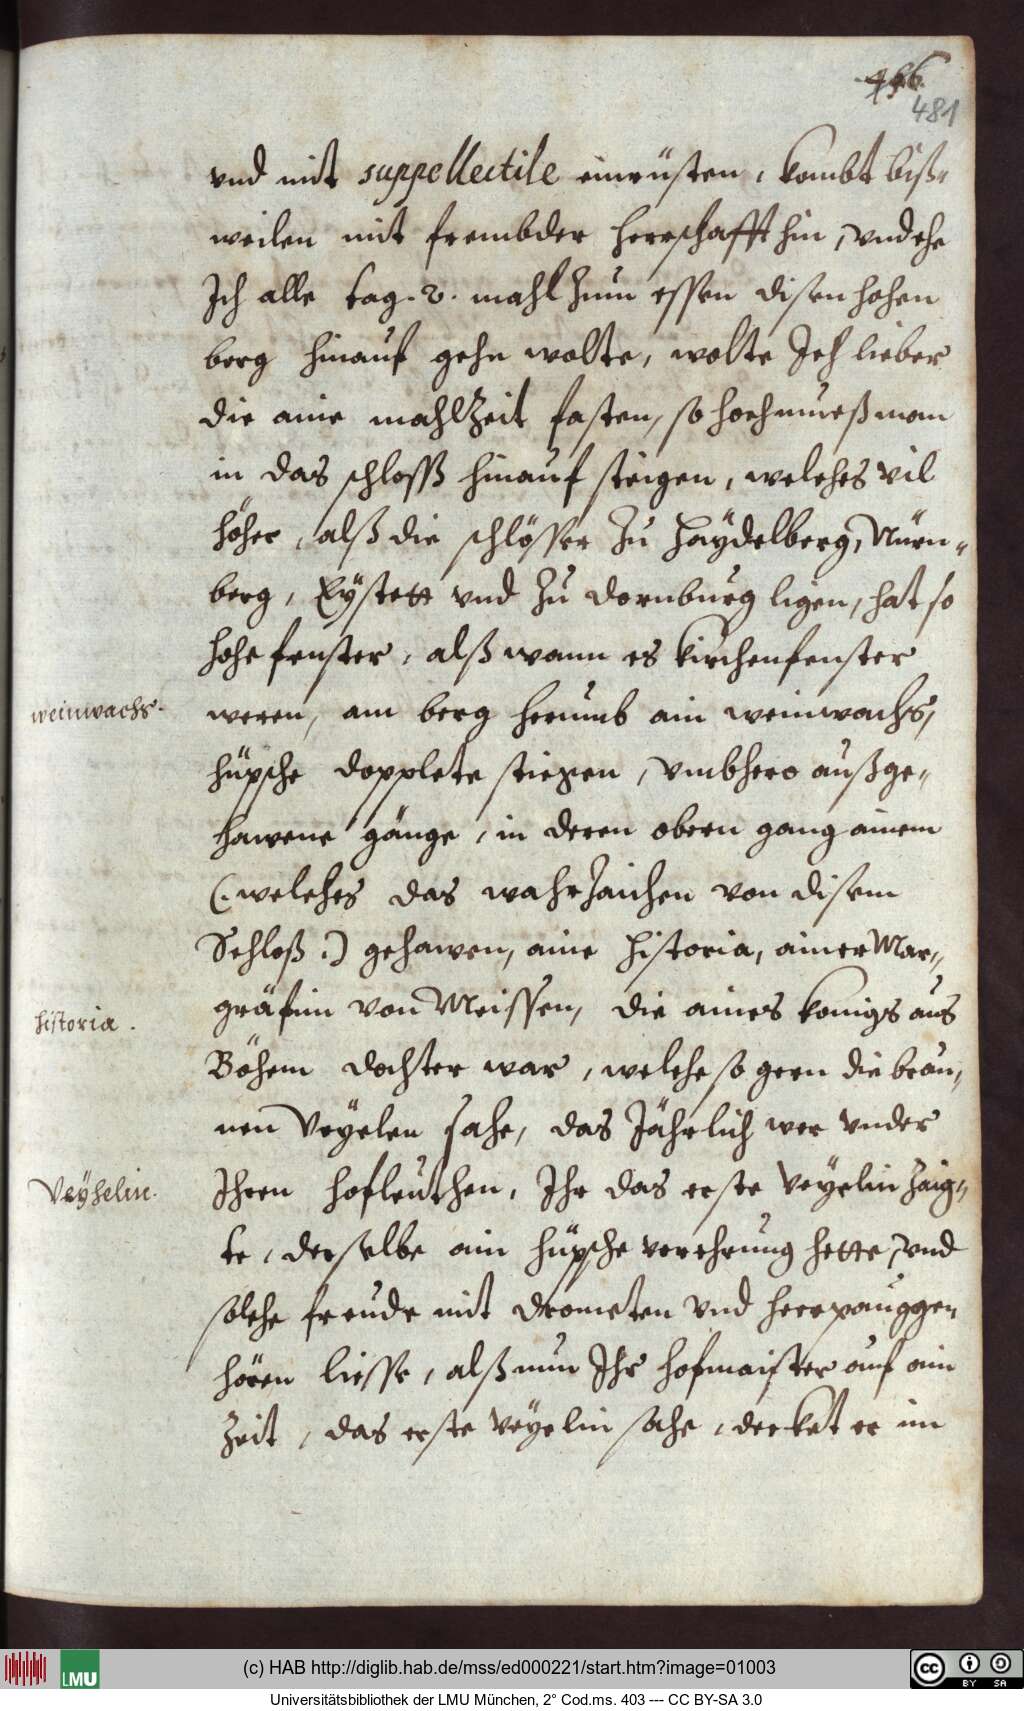 456.
481
vnd mit suppellectile einrüsten, kombt biß=
weilen mit frembder herrschafft hin, vnd ehe
Ich alle tag .2. mahl zum essen disen hohen
berg hinauf gehn wolte, wolte Ich lieber
die aine mahlzeit fasten, so hoch mueß man
in das schloß hinauf steigen, welches vil
höher, alß die schlösser zu Haÿdelberg, Nürn=
berg, Eÿstett vnd zu dornburg ligen, hat so
hohe fenster, alß wann es kirchenfenster
weinwachs.
weren, am berg herumb ain weinwachs,
hüpsche dopplete stiegen, vmbhero außge=
hawene gänge, in deren obern gang ainem
(. welches das wahrzaichen von disem
Schloß .) gehawen, aine historia, ainer Mar=
gräfin von Meissen, die aines konigs aus
historia.
Böhem dochter war, welche so gern die brau=
nen Veÿelen sahe, das Jährlich wer vnder
Veÿhelin.
Ihren hofleuthen, Ihr das erste Veÿelin zaig=
te, derselbe ain hüpsche verehrung hette, vnd
solche freude mit drometen vnd heerpauggen
hören liesse, alß nun Ihr hofmaister auf ain
Zeit, das erste veÿelin sahe, decket er im
LMU
(c) HAB http://diglib.hab.de/mss/ed000221/start.htm?image=01003
cc BY SA
Universitätsbibliothek der LMU München, 2° Cod.ms. 403 --- CC BY-SA 3.0